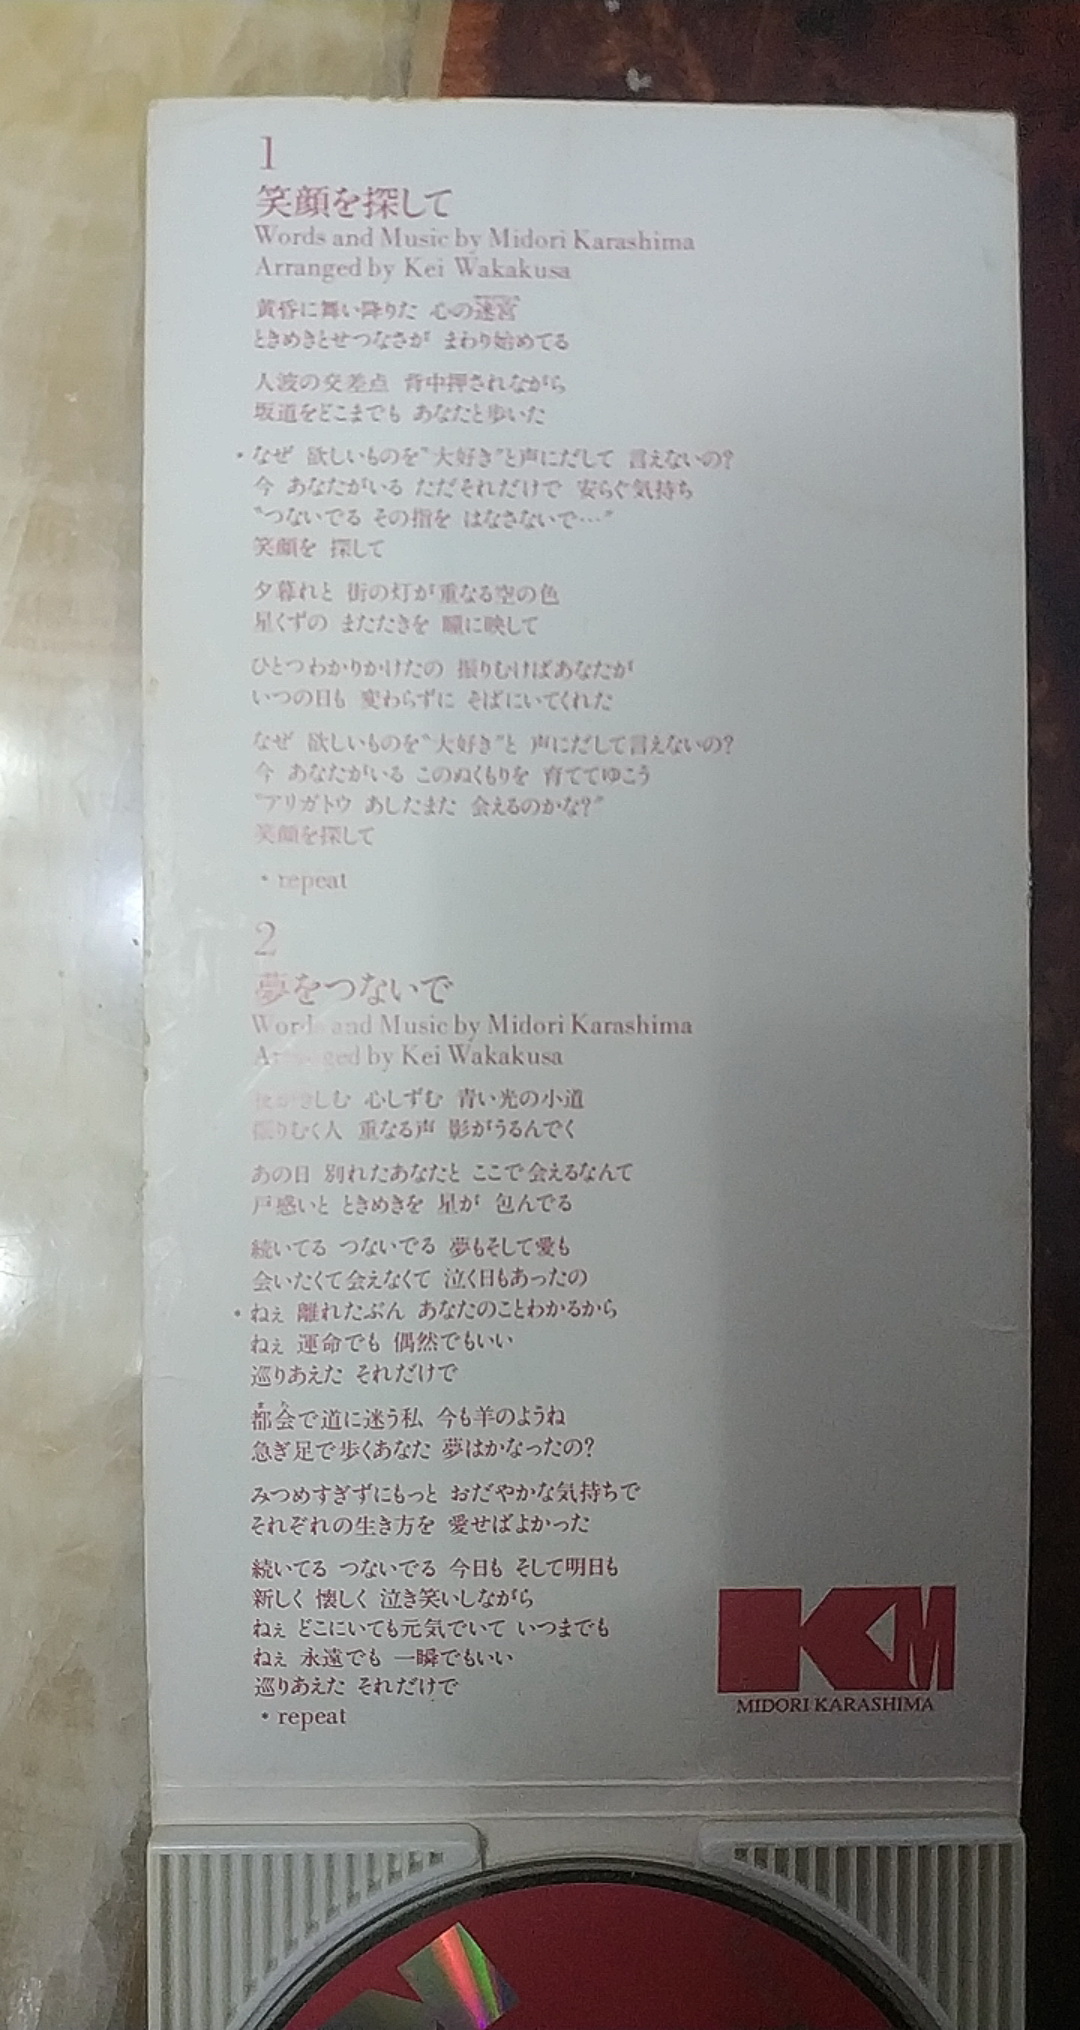 1
笑顔を探して
Words and Music by Midori Karashima
Arranged by Kei Wakakusa
黄昏に舞い降りた 心の迷宮
ときめきとせつなさが まわり始めてる
人波の交差点 背中押されながら
坂道をどこまでも あなたと歩いた
* なぜ 欲しいものを“大好き”と声にだして 言えないの?
今 あなたがいる ただそれだけで 安らぐ気持ち
“つないでる その指を はなさないで…”
笑顔を 探して
夕暮れと 街の灯が重なる空の色
星くずの またたきを 瞳に映して
ひとつわかりかけたの 振りむけばあなたが
いつの日も 変わらずに そばにいてくれた
なぜ 欲しいものを“大好き”と 声にだして言えないの?
今 あなたがいる このぬくもりを 育ててゆこう
“アリガトウ あしたまた 会えるのかな?”
笑顔を探して
* repeat
2
夢をつないで
Words and Music by Midori Karashima
Arranged by Kei Wakakusa
心しずむ 青い光の小道
振りむく人 重なる声 影がうるんでく
あの日 別れたあなたと ここで会えるなんて
戸惑いと ときめきを 星が 包んでる
続いてる つないでる 夢もそして愛も
会いたくて会えなくて 泣く日もあったの
* ねぇ 離れたぶん あなたのことわかるから
ねぇ 運命でも 偶然でもいい
巡りあえた それだけで
都会で道に迷う私 今も羊のようね
急ぎ足で歩くあなた 夢はかなったの?
みつめすぎずにもっと おだやかな気持ちで
それぞれの生き方を 愛せばよかった
続いてる つないでる 今日も そして明日も
新しく 懐しく 泣き笑いしながら
ねぇ どこにいても元気でいて いつまでも
ねぇ 永遠でも 一瞬でもいい
巡りあえた それだけで
* repeat
KM
MIDORI KARASHIMA